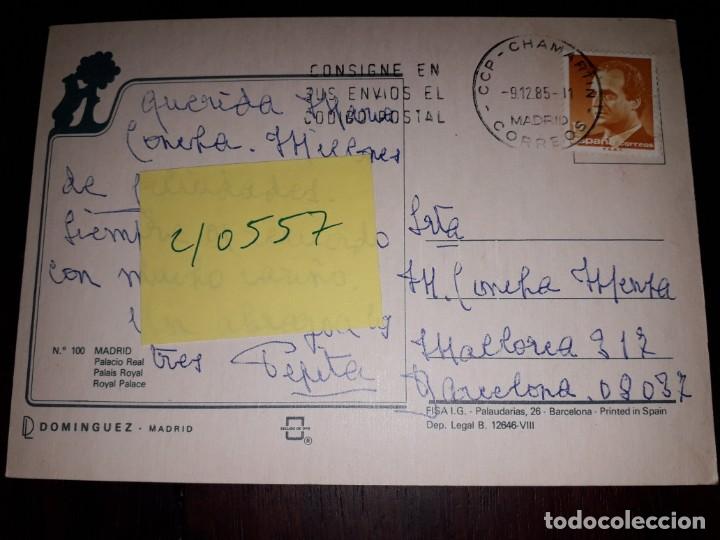 CONSIGNE EN
SUS ENVIOS EL
CODIGO POSTAL
CCP - CHAMARTIN
-9.12.85-11
MADRID
CORREOS
España correos
Querida Maria
Concha. Millones
de felicidades.
Siempre
con mucho cariño
Un abrazo
tres Pepita
c/0557
Srta
M. Concha
Mallorca 317
Barcelona. 08037
N.° 100 MADRID
Palacio Real
Palais Royal
Royal Palace
DOMINGUEZ - MADRID
®
FISA I.G. - Palaudarias, 26 - Barcelona - Printed in Spain
Dep. Legal B. 12646-VIII
todocoleccion
todocoleccion.net